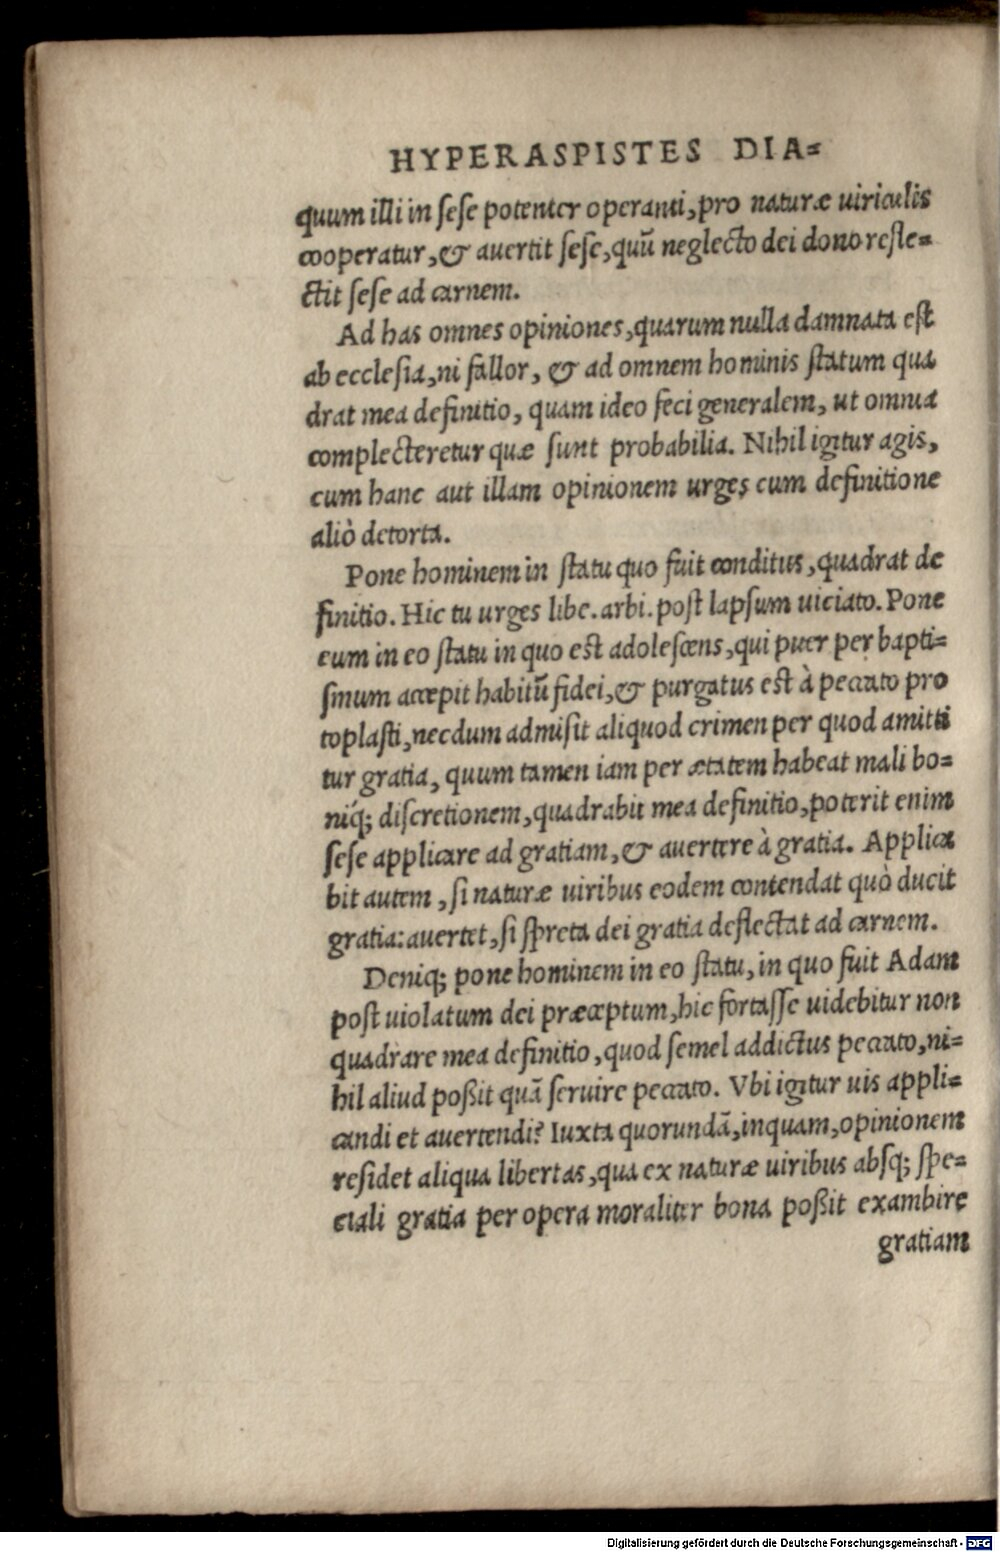 HYPERASPISTES DIA=
quum illi in sese potenter operanti, pro naturæ uiriculis
cooperatur, & auertit sese, quū neglecto dei dono refle=
ctit sese ad carnem.
Ad has omnes opiniones, quarum nulla damnata est
ab ecclesia, ni fallor, & ad omnem hominis statum qua
drat mea definitio, quam ideo feci generalem, ut omnia
complecteretur quæ sunt probabilia. Nihil igitur agis,
cum hanc aut illam opinionem urges cum definitione
aliò detorta.
Pone hominem in statu quo fuit conditus, quadrat de
finitio. Hic tu urges libe. arbi. post lapsum uiciato. Pone
eum in eo statu in quo est adolescens, qui puer per bapti=
smum accepit habitū fidei, & purgatus est à peccato pro
toplasti, necdum admisit aliquod crimen per quod amitti
tur gratia, quum tamen iam per ætatem habeat mali bo=
niq́; discretionem, quadrabit mea definitio, poterit enim
sese applicare ad gratiam, & auertere à gratia. Applica
bit autem, si naturæ uiribus eodem contendat quò ducit
gratia: auertet, si spreta dei gratia deflectat ad carnem.
Deniq; pone hominem in eo statu, in quo fuit Adam
post uiolatum dei præceptum, hic fortasse uidebitur non
quadrare mea definitio, quod semel addictus peccato, ni=
hil aliud poßit quā seruire peccato. Vbi igitur uis appli=
candi et auertendi? Iuxta quorundā, inquam, opinionem
residet aliqua libertas, qua ex naturæ uiribus absq; spe=
ciali gratia per opera moraliter bona poßit exambire
gratiam
Digitalisierung gefördert durch die Deutsche Forschungsgemeinschaft - DFG